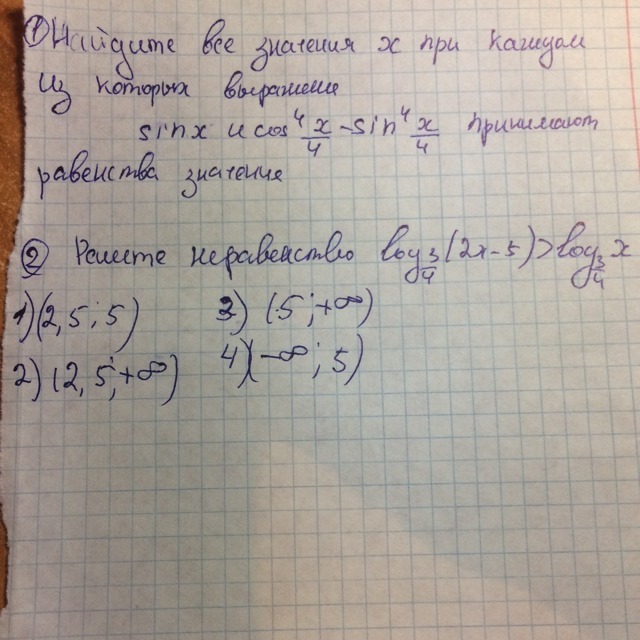 ① Найдите все значения x при каждом
из которых выражение
sin x и cos⁴ x/4 - sin⁴ x/4 принимают
равенства значение
② Решите неравенство log_3/4 (2x-5) > log_3/4 x
1) (2,5; 5) 3) (5; +∞)
2) (2,5; +∞) 4) (-∞; 5)